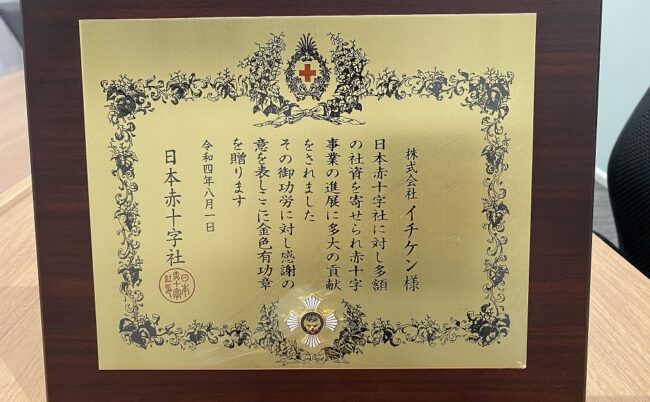 株式会社 イチケン 様
日本赤十字社に対し多額
の社資を寄せられ赤十字
事業の進展に多大の貢献
をされました
その御功労に対し感謝の
意を表しここに金色有功章
を贈ります
令和四年八月一日
日本赤十字社
日本赤十字社長